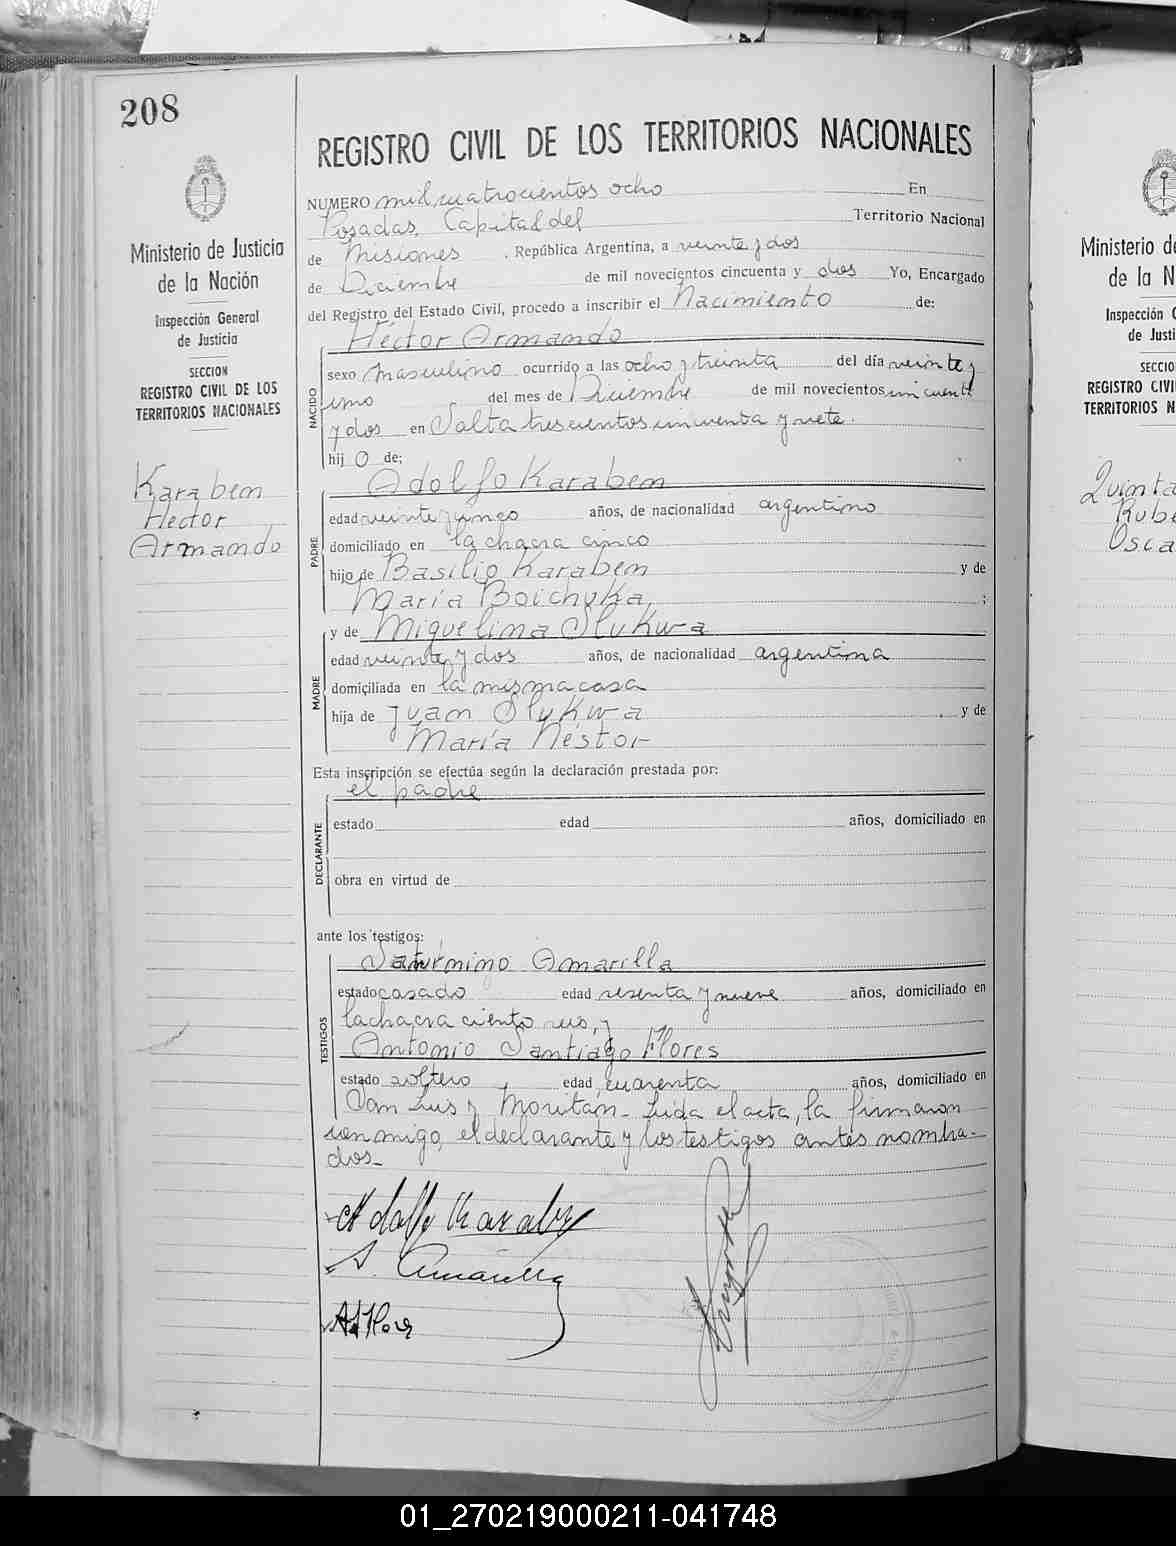 208
REGISTRO CIVIL DE LOS TERRITORIOS NACIONALES
Ministerio de Justicia
de la Nación
Inspección General
de Justicia
SECCION
REGISTRO CIVIL DE LOS
TERRITORIOS NACIONALES
Karabem
Hector
Armando
NUMERO mil cuatrocientos ocho En
Posadas, Capital del Territorio Nacional
de Misiones, República Argentina, a veinte y dos
de Diciembre de mil novecientos cincuenta y dos Yo, Encargado
del Registro del Estado Civil, procedo a inscribir el Nacimiento de:
NACIDO
Héctor Armando
sexo masculino ocurrido a las ocho y treinta del día veinte y
uno del mes de Diciembre de mil novecientos cincuenta
y dos en Salta trescientos cincuenta y siete.
hijo de:
PADRE
Adolfo Karabem
edad veinte y cinco años, de nacionalidad argentino
domiciliado en la chacra cinco
hijo de Basilio Karabem y de
María Boichuka;
MADRE
y de Miguelina Slukwa
edad veinte y dos años, de nacionalidad argentina
domiciliada en la misma casa
hija de Juan Slukwa y de
María Néstor
Esta inscripción se efectúa según la declaración prestada por:
DECLARANTE
el padre
estado edad años, domiciliado en
obra en virtud de
ante los testigos:
TESTIGOS
Saturnino Amarilla
estado casado edad sesenta y nueve años, domiciliado en
la chacra ciento seis, y
Antonio Santiago Flores
estado soltero edad cuarenta años, domiciliado en
San Luis y Moritán. Leída el acta, la firmaron
conmigo, el declarante y los testigos antes nombra-
dos.
Adolfo Karabem
A. Amarilla
Ministerio de
de la N
Inspección G
de Justi
SECCIO
REGISTRO CIVI
TERRITORIOS N
Quinta
Rube
Osca
01_270219000211-041748